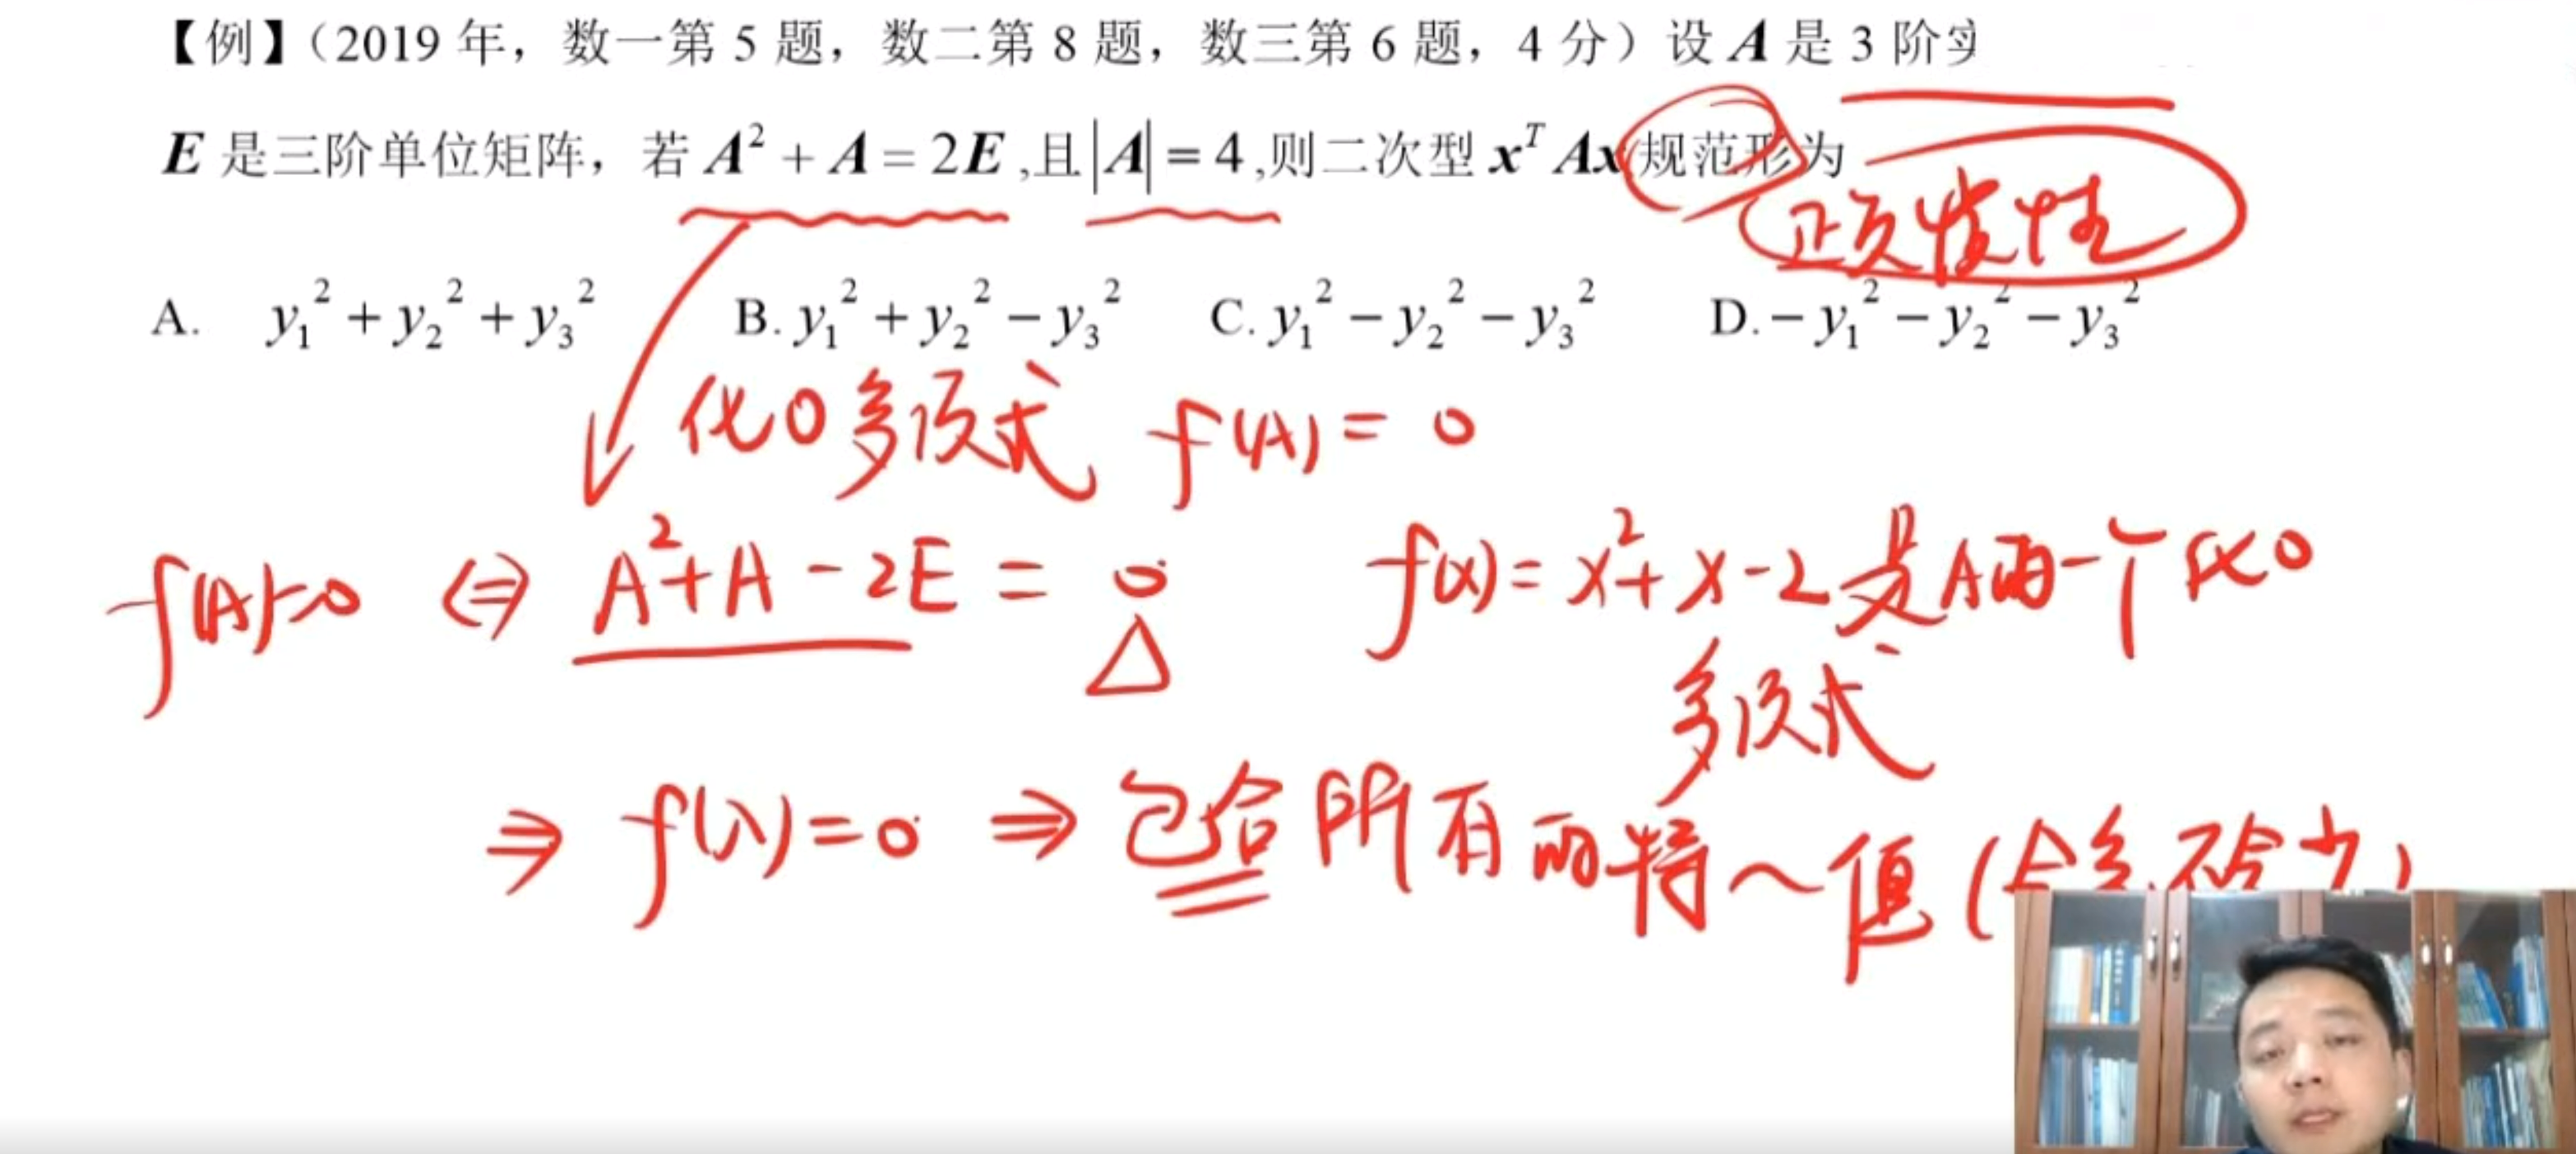 【例】（2019 年，数一第 5 题，数二第 8 题，数三第 6 题，4 分）设 A 是 3 阶实
E 是三阶单位矩阵，若 A² + A = 2E ,且|A| = 4 ,则二次型 xᵀ Ax 规范形为
正负惯性
A. y₁² + y₂² + y₃² B. y₁² + y₂² − y₃² C. y₁² − y₂² − y₃² D. − y₁² − y₂² − y₃²
化0多项式 f(A) = 0
f(A)=0 ⇔ A²+A−2E = 0 f(x)= x²+x−2 是A的一个化0
△ 多项式
⇒ f(λ)=0 ⇒ 包含所有的特~值(会多,不会少)